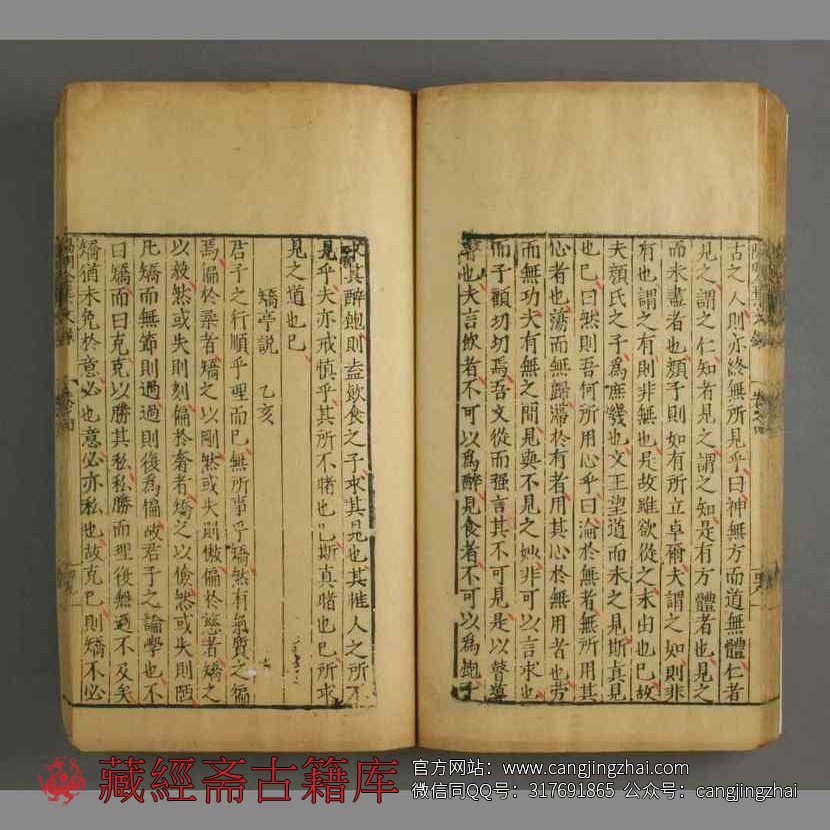 古之人則亦終無所見乎曰神無方而道無體仁者
見之謂之仁知者見之謂之知是有方體者也見之
而未盡者也顏子則如有所立卓爾夫謂之如則非
有也謂之有則非無也是故雖欲從之末由也已故
夫顏氏之子為庶幾也文王望道而未之見斯真見
也已曰然則吾何所用心乎曰淪於無者無所用其
心者也蕩而無歸滯於有者用其心於無用者也勞
而無功夫有無之間見與不見之妙非可以言求也
而子顧切切焉吾又從而强言其不可見是以瞽導
瞽也夫言飲者不可以為醉見食者不可以為飽子
求其醉飽則盍飲食之子求其見也其惟人之所不
見乎夫亦戒慎乎其所不睹也已斯真睹也已所求
見之道也已
矯亭說 乙亥
君子之行順乎理而已無所事乎矯然有氣質之偏
焉偏於柔者矯之以剛然或失則傲偏於慈者矯之
以毅然或失則刻偏於奢者矯之以儉然或失則陋
凡矯而無節則過過則復為偏故君子之論學也不
曰矯而曰克克以勝其私私勝而理復無過不及矣
矯猶未免於意必也意必亦私也故克己則矯不必
藏經斋古籍库
官方网站：www.cangjingzhai.com
微信同QQ号：317691865 公众号：cangjingzhai